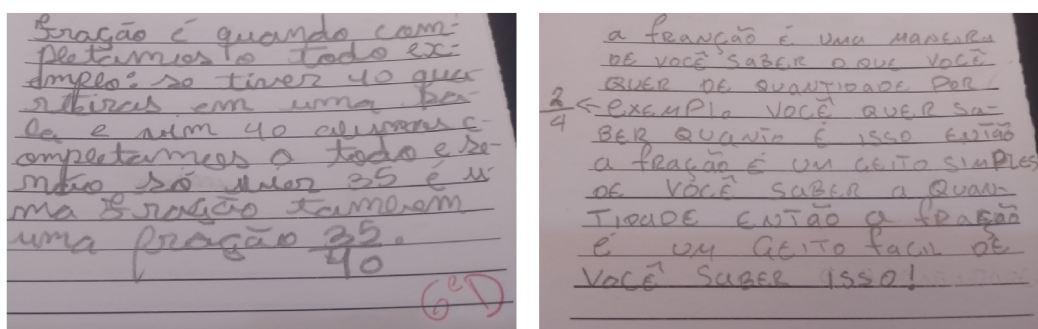 Fração é quando com-
pletamos o todo ex-
emplo: se tiver 40 qua
rteiras em uma
la e vim 40 alunos c-
ompletamos o todo e se-
não só vier 35 é u
ma Fração tamerem
uma fração 35/40.
6ºD
a feanção É uma maneira
DE você saber o que você
QUER DE QUANTIDADE POR
2/4 ← exemplo você QUER SA-
BER QUANTO É ISSO ENTÃO
a fração É um GEITO SIMPLES
DE VOCÊ SABER a QUAN-
TIDADE ENTÃO a fração
é um GEITO facil DE
VOCÊ SABER ISSO!